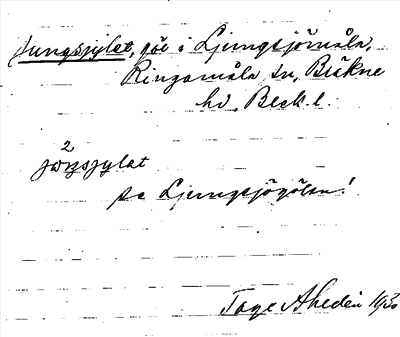 Jungsjylet, göl i Ljungsjömåla,
Ringamåla sn, Bräkne
hd, Blek. l.
2
joŋsjylat
se Ljungsjögölen!
Tage Ahedin 1930